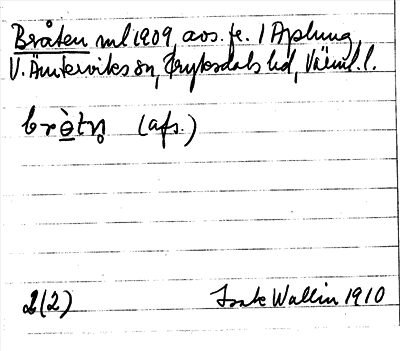 Bråten ml 1909 avs. fr. 1 Aplung
V. Ämterviks sn, Fryksdals hd, Värml. l.
brètn̥ (afs.)
2(2) Isak Wallin 1910